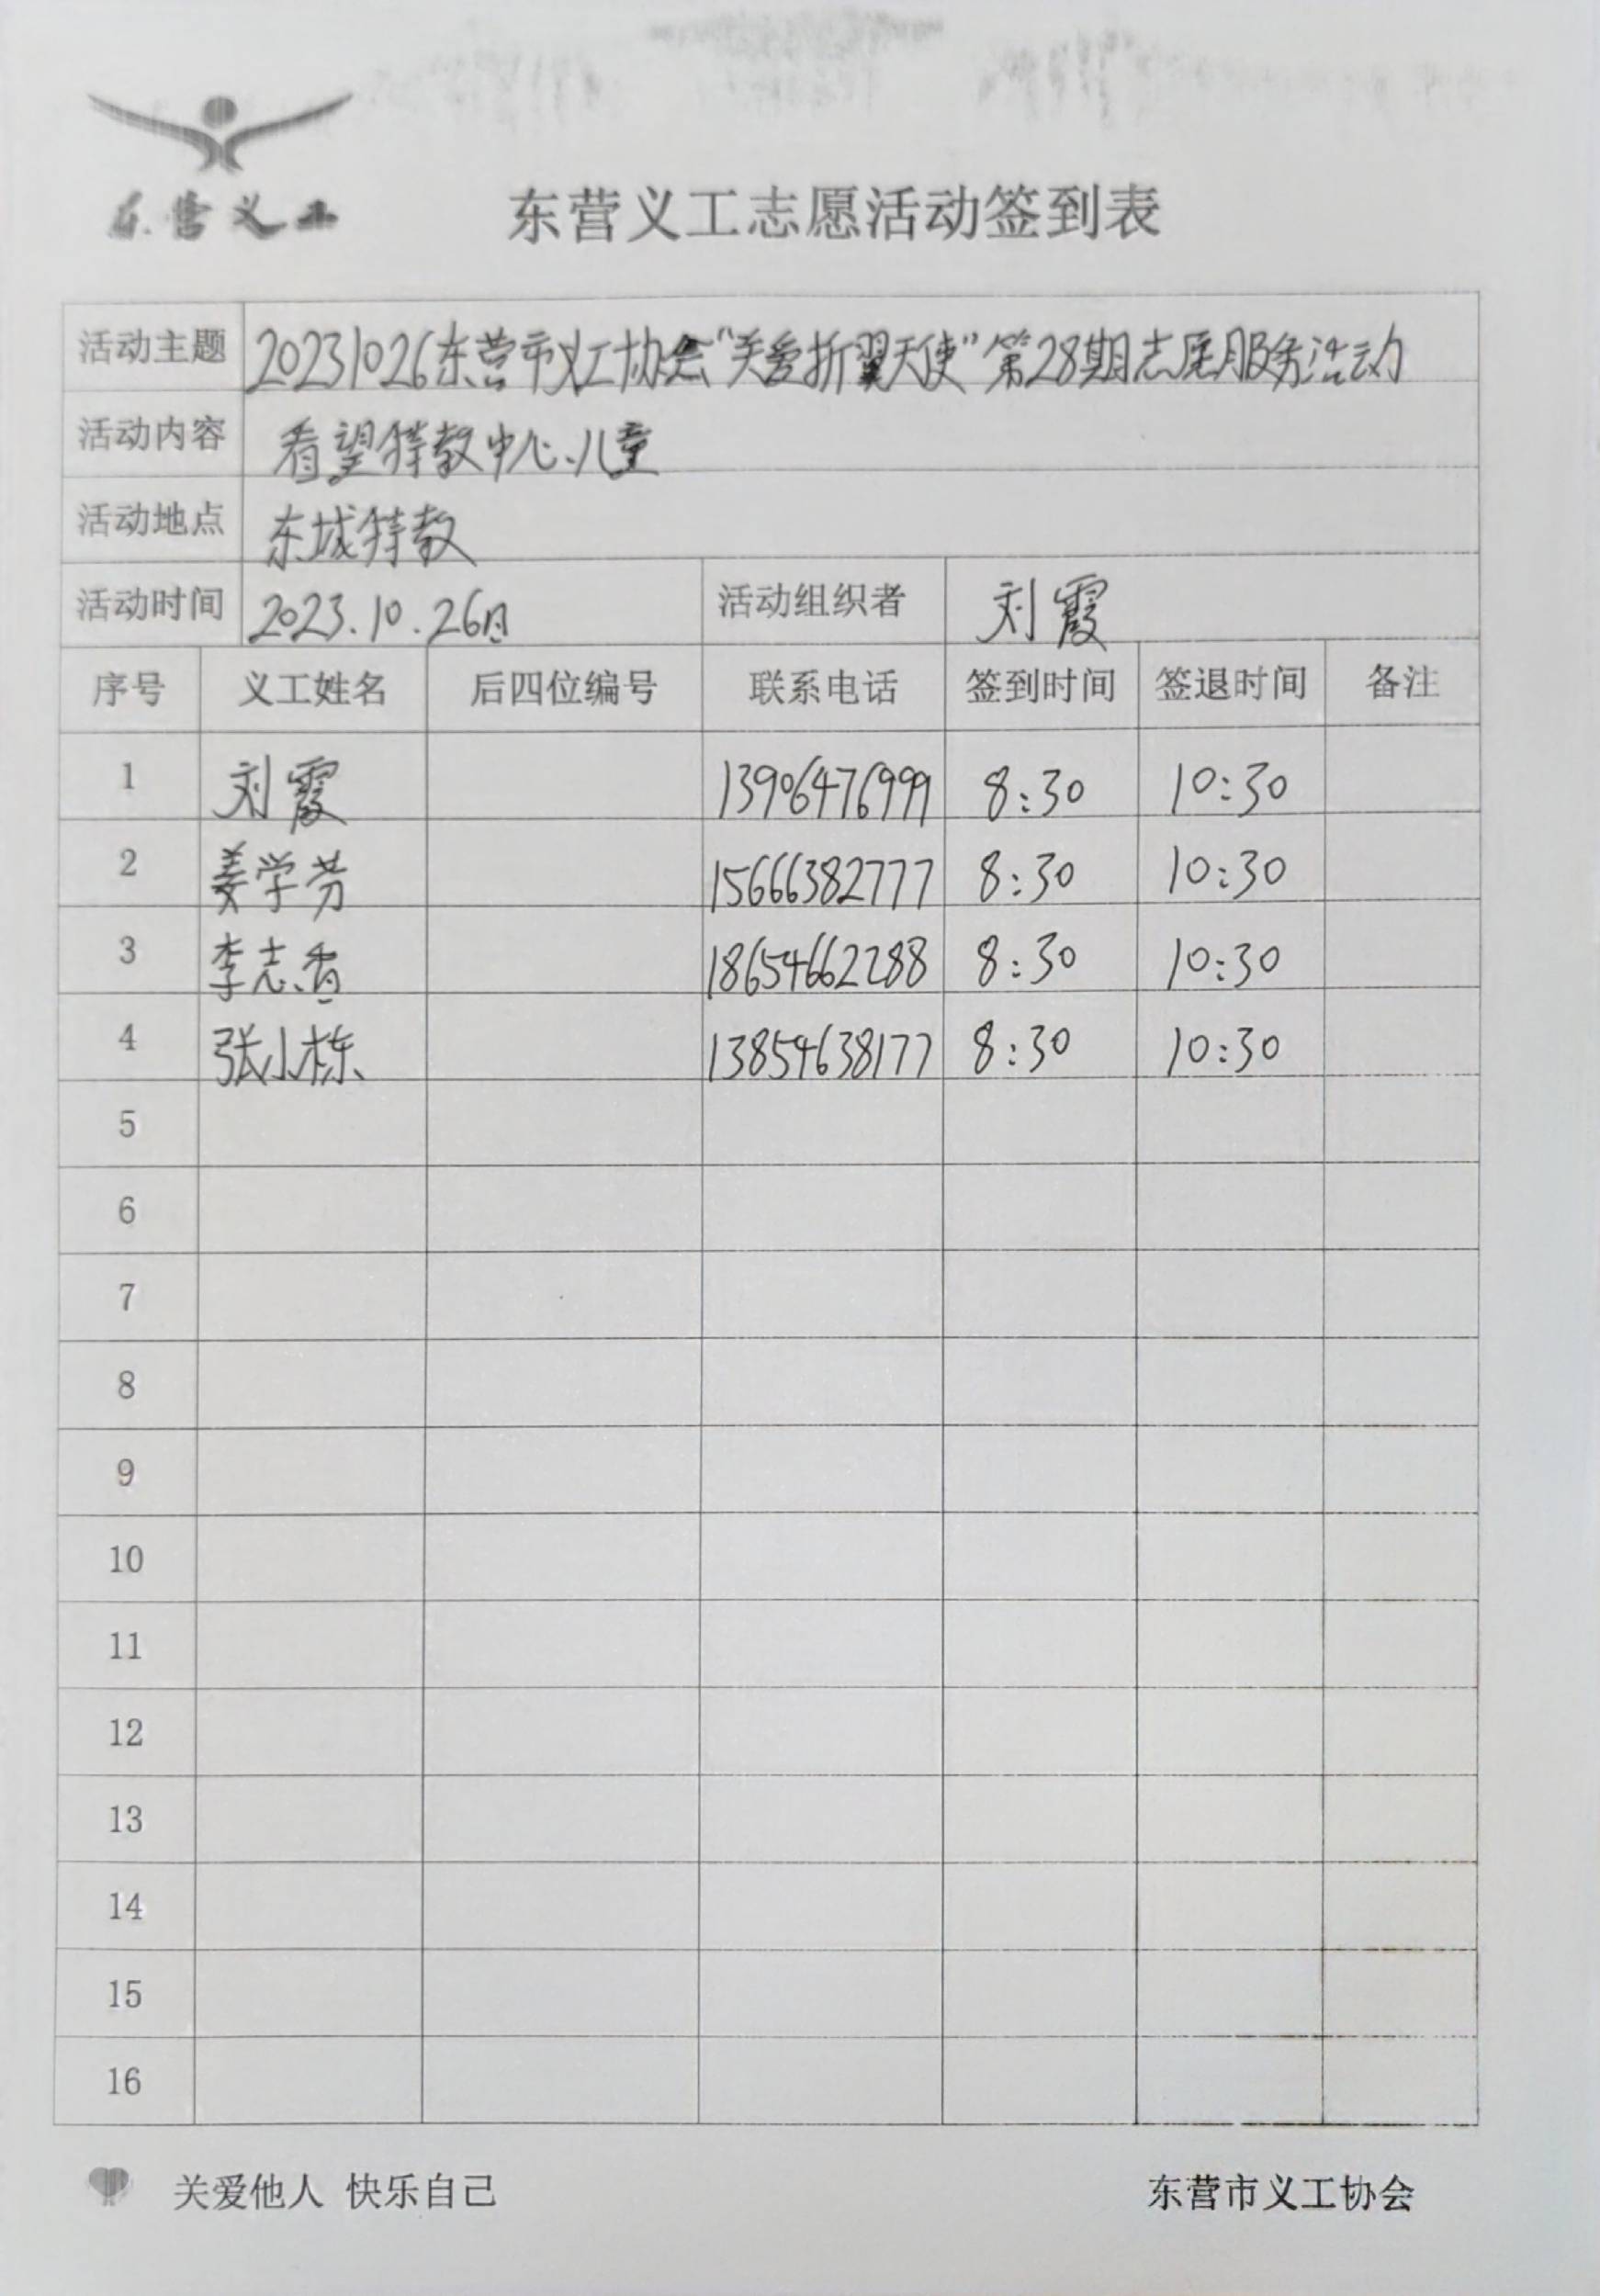 东营义工
东营义工志愿活动签到表
活动主题 20231026东营市义工协会“关爱折翼天使”第28期志愿服务活动
活动内容 看望特教中心儿童
活动地点 东城特教
活动时间 2023.10.26日 活动组织者 刘霞
序号 义工姓名 后四位编号 联系电话 签到时间 签退时间 备注
1 刘霞 13906476999 8:30 10:30
2 姜学芳 15666382777 8:30 10:30
3 李志香 18654662288 8:30 10:30
4 张小栋 13854638177 8:30 10:30
5
6
7
8
9
10
11
12
13
14
15
16
关爱他人 快乐自己 东营市义工协会